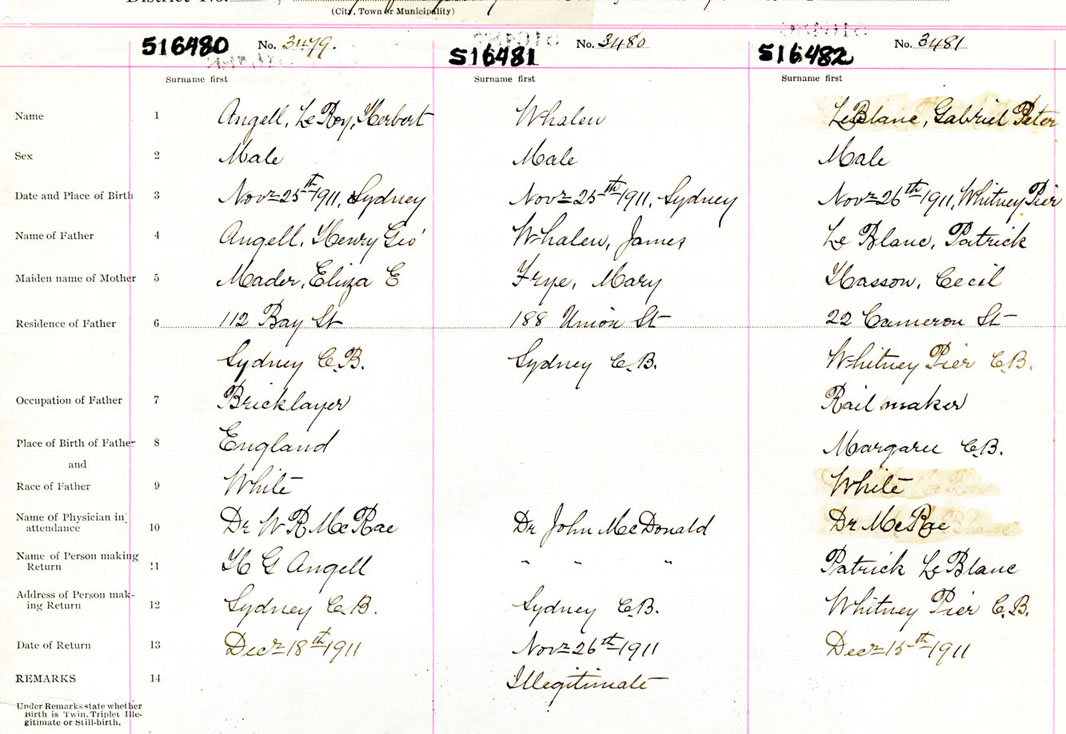 District No.
(City, Town or Municipality)
516480 No. 3479. 516481 No. 3480 516482 No. 3481
Surname first Surname first Surname first
Name 1 Angell, Le Roy, Herbert Whalen LeBlanc, Gabriel Peter
Sex 2 Male Male Male
Date and Place of Birth 3 Novr 25th 1911, Sydney Novr 25th 1911, Sydney Novr 26th 1911, Whitney Pier
Name of Father 4 Angell, Henry Geo' Whalen, James Le Blanc, Patrick
Maiden name of Mother 5 Mader, Eliza E Frye, Mary Hasson, Cecil
Residence of Father 6 112 Bay St 188 Union St 22 Cameron St
Sydney C.B. Sydney C.B. Whitney Pier C.B.
Occupation of Father 7 Bricklayer Rail maker
Place of Birth of Father 8 England Margaree C.B.
and
Race of Father 9 White White
Name of Physician in attendance 10 Dr W R McRae Dr John McDonald Dr McRae
Name of Person making Return 11 H G Angell " " " Patrick Le Blanc
Address of Person making Return 12 Sydney C.B. Sydney C.B. Whitney Pier C.B.
Date of Return 13 Decr 18th 1911 Novr 26th 1911 Decr 15th 1911
REMARKS 14 Illegitimate
Under Remarks state whether
Birth is Twin, Triplet Ille-
gitimate or Still-birth.